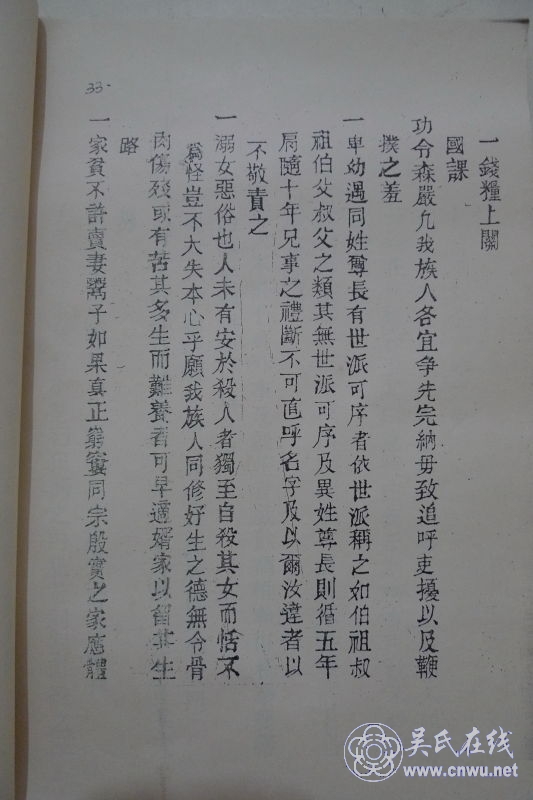 33
一錢糧上關
國課
功令森嚴凢我族人各宜爭先完納毋致追呼吏擾以及鞭
撲之羞
一卑幼遇同姓尊長有世派可序者依世派稱之如伯祖叔
祖伯父叔父之類其無世派可序及異姓尊長則循五年
肩隨十年兄事之禮斷不可直呼名字及以爾汝違者以
不敬責之
一溺女惡俗也人未有安於殺人者獨至自殺其女而恬不
爲怪豈不大失本心乎願我族人同修好生之德無令骨
肉傷殘或有苦其多生而難養者可早適婿家以留其生
路
一家貧不許賣妻鬻子如果真正窮窶同宗殷實之家應體
吴氏在线
www.cnwu.net